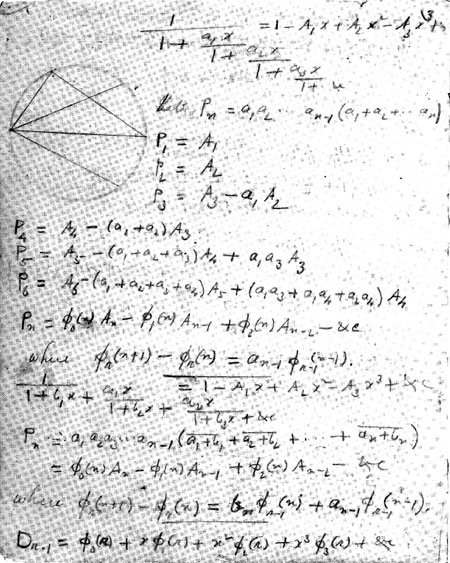 1/(1 + a₁x/(1 + a₂x/(1 + a₃x/(1 + &c = 1 - A₁x + A₂x² - A₃x³ +
Pₙ = a₁a₂ ... aₙ₋₁(a₁+a₂+...aₙ)
P₁ = A₁
P₂ = A₂
P₃ = A₃ - a₁A₂
P₄ = A₄ - (a₁+a₂)A₃.
P₅ = A₅ - (a₁+a₂+a₃)A₄ + a₁a₃A₃
P₆ = A₆ - (a₁+a₂+a₃+a₄)A₅ + (a₁a₃+a₁a₄+a₂a₄)A₄
Pₙ = φ₀(n)Aₙ - φ₁(n)Aₙ₋₁ + φ₂(n)Aₙ₋₂ - &c
where φᵣ(n+1) - φᵣ(n) = aₙ₋₁φᵣ₋₁(n-1).
1/(1+b₁x + a₁x/(1+b₂x + a₂x/(1+b₃x + &c = 1 - A₁x + A₂x² - A₃x³ + &c
Pₙ = a₁a₂a₃...aₙ₋₁(a₁+b₁ + a₂+b₂ + ... + aₙ+bₙ)
= φ₀(n)Aₙ - φ₁(n)Aₙ₋₁ + φ₂(n)Aₙ₋₂ - &c
where φᵣ(n+1) - φᵣ(n) = bₙφᵣ₋₁(n) + aₙ₋₁φᵣ₋₁(n-1).
Dₙ₋₁ = φ₀(n) + xφ₁(n) + x²φ₂(n) + x³φ₃(n) + &c